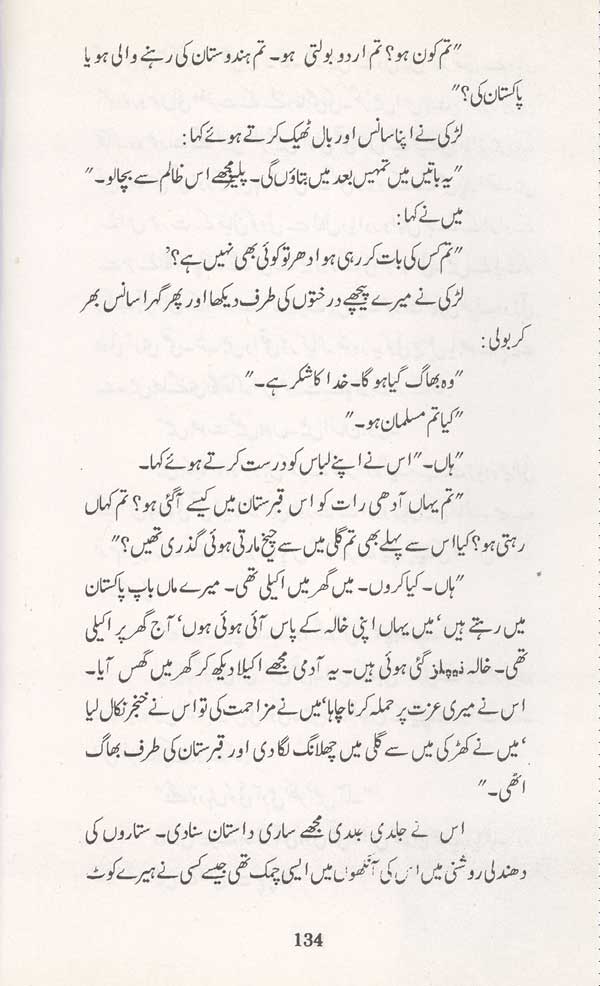 "تم کون ہو؟ تم اردو بولتی ہو۔ تم ہندوستان کی رہنے والی ہو یا
پاکستان کی؟"
لڑکی نے اپنا سانس اور بال ٹھیک کرتے ہوئے کہا:
"یہ باتیں میں تمہیں بعد میں بتاؤں گی۔ پلیز مجھے اس ظالم سے بچالو۔"
میں نے کہا:
"تم کس کی بات کر رہی ہو ادھر تو کوئی بھی نہیں ہے؟'
لڑکی نے میرے پیچھے درختوں کی طرف دیکھا اور پھر گہرا سانس بھر
کر بولی:
"وہ بھاگ گیا ہو گا۔ خدا کا شکر ہے۔"
"کیا تم مسلمان ہو۔"
"ہاں۔" اس نے اپنے لباس کو درست کرتے ہوئے کہا۔
"تم یہاں آدھی رات کو اس قبرستان میں کیسے آگئی ہو؟ تم کہاں
رہتی ہو؟ کیا اس سے پہلے بھی تم گلی میں سے چیخ مارتی ہوئی گذری تھیں؟"
"ہاں۔ کیا کروں۔ میں گھر میں اکیلی تھی۔ میرے ماں باپ پاکستان
میں رہتے ہیں' میں یہاں اپنی خالہ کے پاس آئی ہوئی ہوں' آج گھر پر اکیلی
تھی۔ خالہ گئی ہوئی ہیں۔ یہ آدمی مجھے اکیلا دیکھ کر گھر میں گھس آیا۔
اس نے میری عزت پر حملہ کرنا چاہا' میں نے مزاحمت کی تو اس نے خنجر نکال لیا
' میں نے کھڑکی میں سے گلی میں چھلانگ لگا دی اور قبرستان کی طرف بھاگ
اٹھی۔"
اس نے جلدی جلدی مجھے ساری داستان سنا دی۔ ستاروں کی
دھندلی روشنی میں اس کی آنکھوں میں ایسی چمک تھی جیسے کسی نے ہیرے کوٹ
134